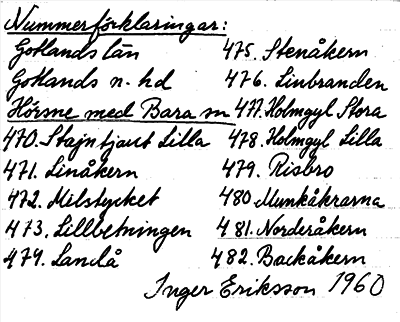 Nummerförklaringar:
Gotlands län
Gotlands n. hd
Hörsne med Bara sn
470. Stajntjaut Lilla
471. Linåkern
472. Milstycket
473. Lillbetningen
474. Landå
475. Stenåkern
476. Linbranden
477. Holmgyl Stora
478. Holmgyl Lilla
479. Risbro
480. Munkåkrarna
481. Norderåkern
482. Backåkern
Inger Eriksson 1960